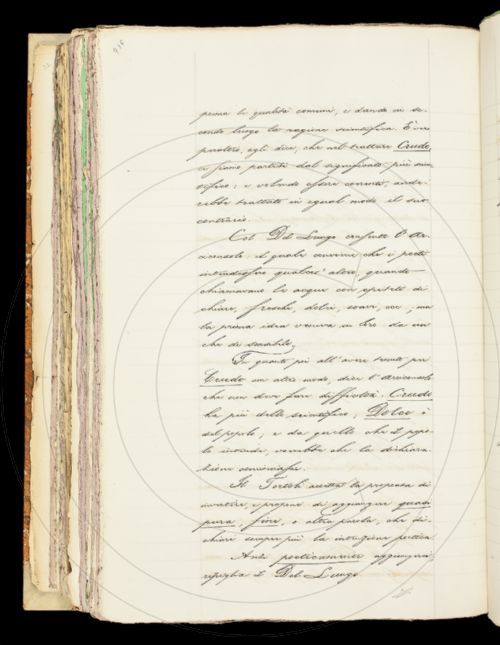 prima le qualità comuni, e dando in se-
condo luogo la ragione scientifica. È un
peccato, egli dice, che nel trattare Crudo,
si siano partiti dal significato più scien
tifico; e volendo essere coerenti, andre-
rebbe trattato in egual modo il suo
contrario.
Col Del Lungo consente l'Ar-
ciconsolo, il quale conviene che i poeti
intendessero qualcos' altro, quando
chiamavano le acque con epiteti di
chiare, fresche, dolci, soavi, ecc., ma
la prima idea veniva in loro da un
che di sensibile.
In quanto poi all'aver tenuto per
Crudo un altro modo, dice l'Arciconsolo
che non deve fare difficoltà. Crudo
ha più dello scientifico, Dolce è
del popolo; e da quello che il popo
lo intende, vorrebbe che la dichiara-
zione cominciasse.
Il Tortoli accetta la proposta di
invertire, e propone di aggiungere quasi
pura, fine, o altra parola, che di-
chiari sempre più la intenzione poetica.
Anzi poeticamente aggiungerei,
ripiglia il Del Lungo.